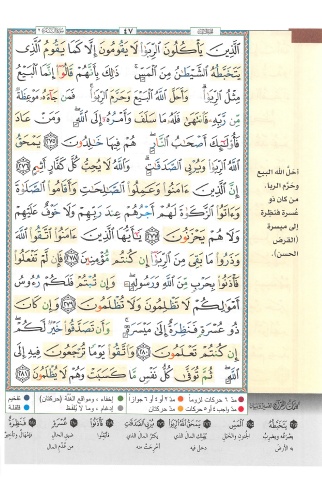 ٤٧
الَّذِينَ يَأْكُلُونَ الرِّبَوٰا۟ لَا يَقُومُونَ إِلَّا كَمَا يَقُومُ الَّذِى
يَتَخَبَّطُهُ الشَّيْطَٰنُ مِنَ الْمَسِّ ۚ ذَٰلِكَ بِأَنَّهُمْ قَالُوٓا۟ إِنَّمَا الْبَيْعُ
مِثْلُ الرِّبَوٰا۟ ۗ وَأَحَلَّ اللَّهُ الْبَيْعَ وَحَرَّمَ الرِّبَوٰا۟ ۚ فَمَن جَآءَهُۥ مَوْعِظَةٌ
مِّن رَّبِّهِۦ فَانتَهَىٰ فَلَهُۥ مَا سَلَفَ وَأَمْرُهُۥٓ إِلَى اللَّهِ ۖ وَمَنْ عَادَ
فَأُو۟لَٰٓئِكَ أَصْحَٰبُ النَّارِ ۖ هُمْ فِيهَا خَٰلِدُونَ ﴿٢٧٥﴾ يَمْحَقُ
اللَّهُ الرِّبَوٰا۟ وَيُرْبِى الصَّدَقَٰتِ ۗ وَاللَّهُ لَا يُحِبُّ كُلَّ كَفَّارٍ أَثِيمٍ ﴿٢٧٦﴾
إِنَّ الَّذِينَ ءَامَنُوا۟ وَعَمِلُوا۟ الصَّٰلِحَٰتِ وَأَقَامُوا۟ الصَّلَوٰةَ
وَءَاتَوُا۟ الزَّكَوٰةَ لَهُمْ أَجْرُهُمْ عِندَ رَبِّهِمْ وَلَا خَوْفٌ عَلَيْهِمْ
وَلَا هُمْ يَحْزَنُونَ ﴿٢٧٧﴾ يَٰٓأَيُّهَا الَّذِينَ ءَامَنُوا۟ اتَّقُوا۟ اللَّهَ
وَذَرُوا۟ مَا بَقِىَ مِنَ الرِّبَوٰٓا۟ إِن كُنتُم مُّؤْمِنِينَ ﴿٢٧٨﴾ فَإِن لَّمْ تَفْعَلُوا۟
فَأْذَنُوا۟ بِحَرْبٍ مِّنَ اللَّهِ وَرَسُولِهِۦ ۖ وَإِن تُبْتُمْ فَلَكُمْ رُءُوسُ
أَمْوَٰلِكُمْ لَا تَظْلِمُونَ وَلَا تُظْلَمُونَ ﴿٢٧٩﴾ وَإِن كَانَ
ذُو عُسْرَةٍ فَنَظِرَةٌ إِلَىٰ مَيْسَرَةٍ ۚ وَأَن تَصَدَّقُوا۟ خَيْرٌ لَّكُمْ ۖ
إِن كُنتُمْ تَعْلَمُونَ ﴿٢٨٠﴾ وَاتَّقُوا۟ يَوْمًا تُرْجَعُونَ فِيهِ إِلَى
اللَّهِ ۖ ثُمَّ تُوَفَّىٰ كُلُّ نَفْسٍ مَّا كَسَبَتْ وَهُمْ لَا يُظْلَمُونَ ﴿٢٨١﴾
أحلّ الله البيع
وحرّم الربا.
من كان ذو
عُسرة فنظِرة
إلى ميسرة
(القرض
الحسن).
مدّ ٦ حركات لزوماً مدّ ٢ أو ٤ أو ٦ جوازاً إخفاء ، ومواقع الغنّة (حركتان) تفخيم
مدّ واجب ٤ أو ٥ حركات مدّ حركتان إدغام ، وما لا يُلفظ قلقلة